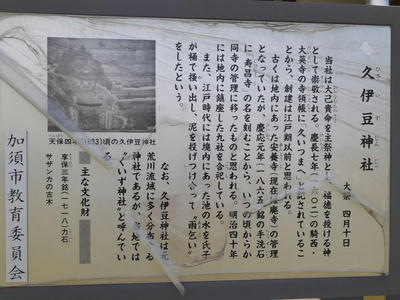 久伊豆神社
ひさ い ず
大祭 四月十日
当社は大己貴命を主祭神とし、福徳を授ける神
として崇敬される。慶長七年(一六〇二)の騎西・
大英寺の寺領帳に〝久いつまへ〟と記されているこ
とから、創建は江戸期以前と思われる。
古くは地内にあった安養寺(現在は廃寺)の管理
となっていたが、慶応元年(一八六五)銘の手洗石
に〝寿昌寺〟の名を刻むことから、いつの頃からか
同寺の管理に移ったものと思われる。明治四十年
には地内に鎮座した九社を合祀している。
また、江戸時代には境内にあった池の水を氏子
が桶で掻い出し、泥を投げつけ合って〝雨乞い〟
をしたという。
なお、久伊豆神社は元
荒川流域に多く分布する
神社であるが、当地では
〝いいず神社〟と呼んでい
る。
天保四年(1833)頃の久伊豆神社
主な文化財
享保三年銘(一七一八)力石
サザンカの古木
加須市教育委員会